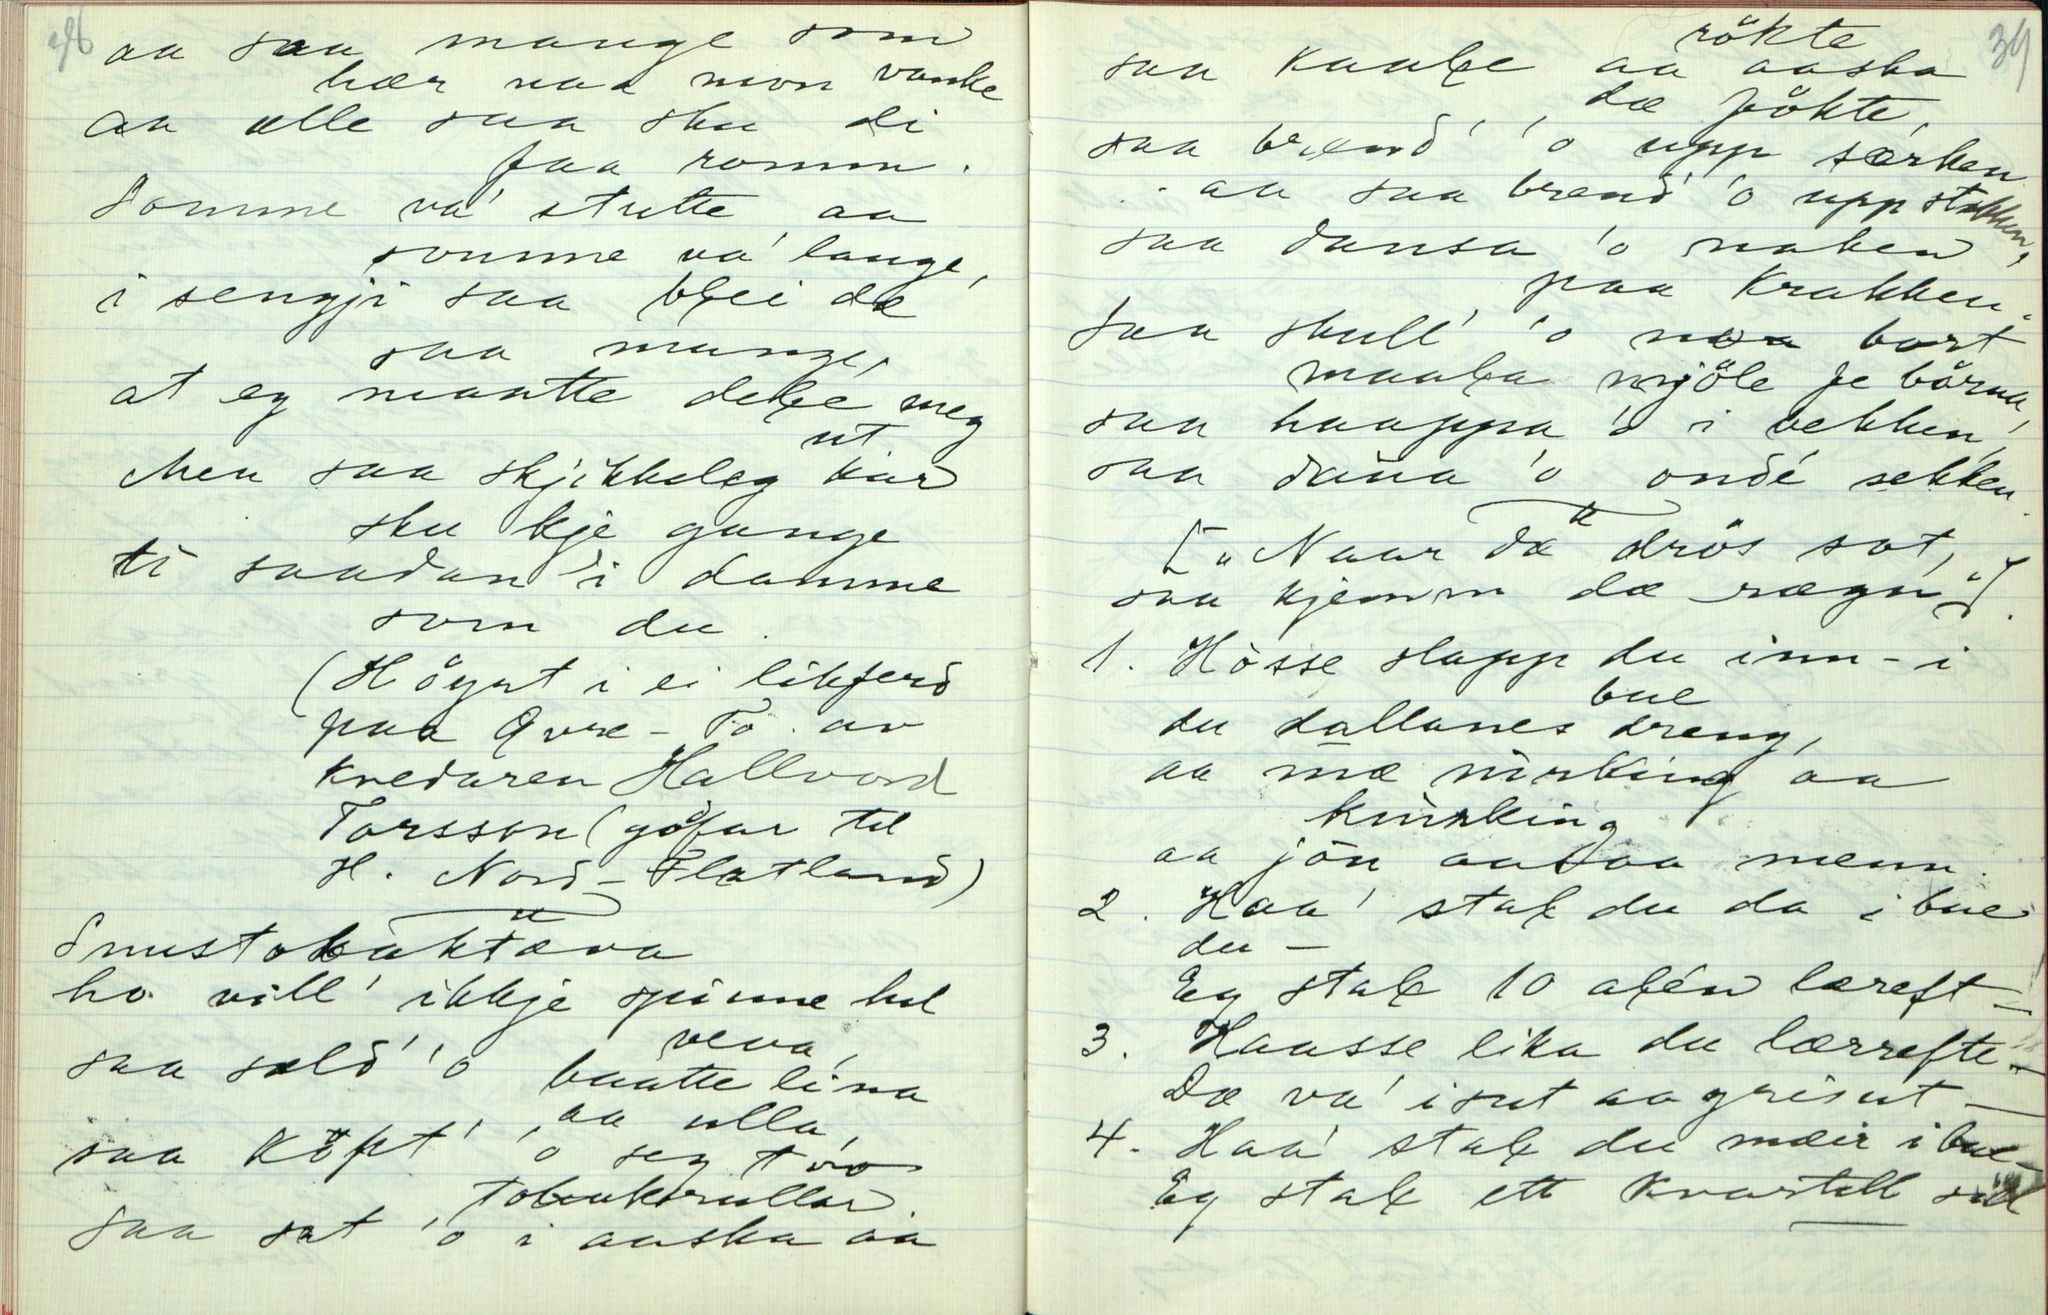 aa saa mange som
hær naa mon vanke
aa alle saa sku di
faa romm.
Somme va' stutte aa
somme va' lange,
i sengji saa blei dæ
saa mange,
at eg maatte deke meg
ut
Men saa skjikkeleg kar
sku kje gange
ti saadan i damme
som du.
(Höyrt i ei likferd
paa Øvre-Tö av
kvedaren Hallvord
Torsson (gofar til
H. Nord-Flatland)
Snustobaktæva
ho vill' ikkje spinne hel
veva,
saa seld' 'o baatte lina
aa ulla,
saa köpt' 'o seg två
tobaksrullar
saa sat 'o i aaska aa
34
rökte
saa kaale aa aaska
dæ fökte,
saa brend' 'o upp særken
aa saa brend' 'o upp stakken,
saa dansa 'o naken
paa krakken.
Saa skull' 'o naa bort
maala mjöle fe börna,
saa haappa 'o i bekken,
saa daua 'o onde sekken.
["Naar dæ drös sot,
saa kjemm dæ rægn"].
1. Hösse slapp du inn-i
bue
du dallanes dreng,
aa mæ nirking aa
knirking
aa jön aataa menn.
2. Haa' stal du da i bue
du —
Eg stal 10 alen læreft —
3. Haasse lika du lærrefte —
Dæ va' isut aa grisut —
4. Haa' stal du meir i bue
Eg stal ett kvartell sill